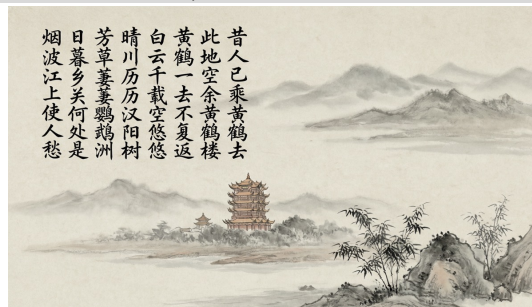 昔人已乘黄鹤去
此地空余黄鹤楼
黄鹤一去不复返
白云千载空悠悠
晴川历历汉阳树
芳草萋萋鹦鹉洲
日暮乡关何处是
烟波江上使人愁